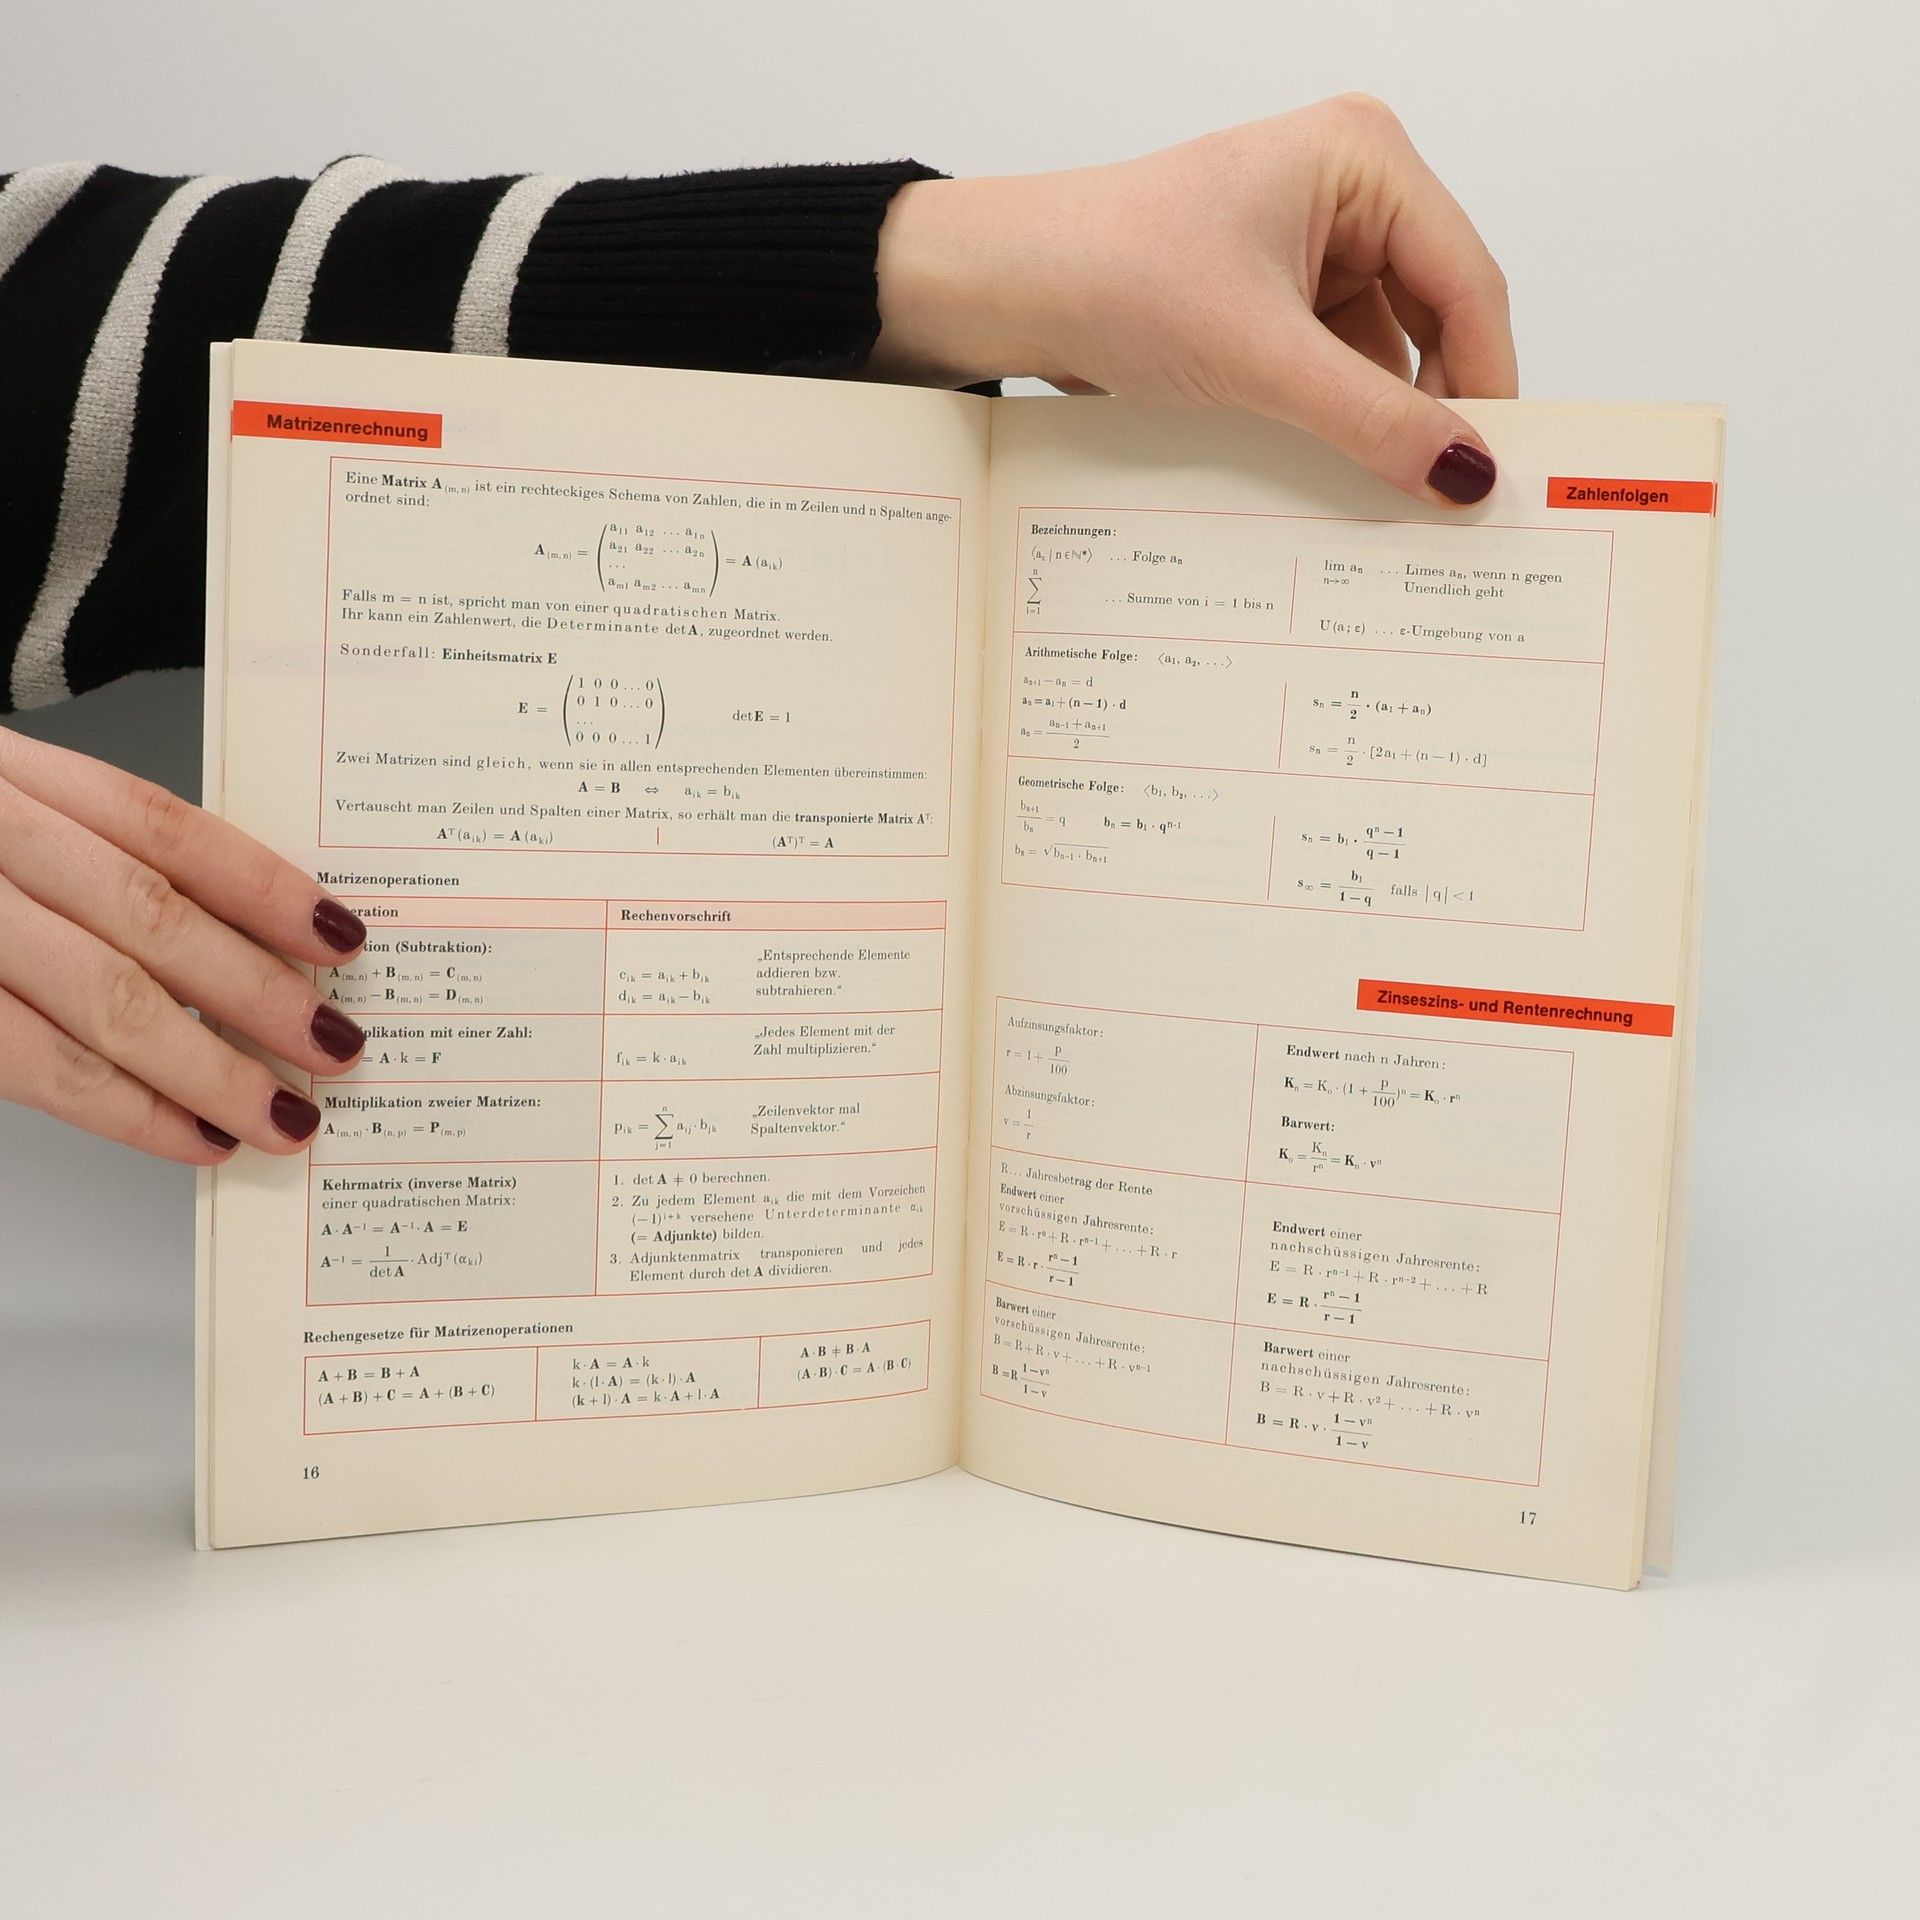 Matrizenrechnung
Eine Matrix A (m, n) ist ein rechteckiges Schema von Zahlen, die in m Zeilen und n Spalten ange-
ordnet sind:
A (m, n) = ( a11 a12 ... a1n
a21 a22 ... a2n
...
am1 am2 ... amn ) = A (aik)
Falls m = n ist, spricht man von einer quadratischen Matrix.
Ihr kann ein Zahlenwert, die Determinante det A, zugeordnet werden.
Sonderfall: Einheitsmatrix E
E = ( 1 0 0 ... 0
0 1 0 ... 0
...
0 0 0 ... 1 ) det E = 1
Zwei Matrizen sind gleich, wenn sie in allen entsprechenden Elementen übereinstimmen:
A = B ⇔ aik = bik
Vertauscht man Zeilen und Spalten einer Matrix, so erhält man die transponierte Matrix Aᵀ:
Aᵀ (aik) = A (aki) (Aᵀ)ᵀ = A
Matrizenoperationen
eration Rechenvorschrift
tion (Subtraktion):
A (m, n) + B (m, n) = C (m, n)
A (m, n) − B (m, n) = D (m, n)
cik = aik + bik
dik = aik − bik
„Entsprechende Elemente
addieren bzw.
subtrahieren.“
plikation mit einer Zahl:
= A · k = F
fik = k · aik
„Jedes Element mit der
Zahl multiplizieren.“
Multiplikation zweier Matrizen:
A (m, n) · B (n, p) = P (m, p)
pik = ∑ⁿj=1 aij · bjk
„Zeilenvektor mal
Spaltenvektor.“
Kehrmatrix (inverse Matrix)
einer quadratischen Matrix:
A · A⁻¹ = A⁻¹ · A = E
A⁻¹ = 1/det A · Adjᵀ (αki)
1. det A ≠ 0 berechnen.
2. Zu jedem Element aik die mit dem Vorzeichen
(−1)ⁱ⁺ᵏ versehene Unterdeterminante αik
(= Adjunkte) bilden.
3. Adjunktenmatrix transponieren und jedes
Element durch det A dividieren.
Rechengesetze für Matrizenoperationen
A + B = B + A
(A + B) + C = A + (B + C)
k · A = A · k
k · (l · A) = (k · l) · A
(k + l) · A = k · A + l · A
A · B ≠ B · A
(A · B) · C = A · (B · C)
16
Zahlenfolgen
Bezeichnungen:
⟨an | n ∈ ℕ*⟩ ... Folge an
∑ⁿi=1 ... Summe von i = 1 bis n
lim n→∞ an ... Limes an, wenn n gegen
Unendlich geht
U (a; ε) ... ε-Umgebung von a
Arithmetische Folge: ⟨a1, a2, ...⟩
an+1 − an = d
an = a1 + (n − 1) · d
an = (an−1 + an+1)/2
sn = n/2 · (a1 + an)
sn = n/2 · [2a1 + (n − 1) · d]
Geometrische Folge: ⟨b1, b2, ...⟩
bn+1/bn = q bn = b1 · qⁿ⁻¹
bn = √(bn−1 · bn+1)
sn = b1 · (qⁿ − 1)/(q − 1)
s∞ = b1/(1 − q) falls | q | < 1
Zinseszins- und Rentenrechnung
Aufzinsungsfaktor:
r = 1 + p/100
Abzinsungsfaktor:
v = 1/r
Endwert nach n Jahren:
Kn = Ko · (1 + p/100)ⁿ = Ko · rⁿ
Barwert:
Ko = Kn/rⁿ = Kn · vⁿ
R... Jahresbetrag der Rente
Endwert einer
vorschüssigen Jahresrente:
E = R · rⁿ + R · rⁿ⁻¹ + ... + R · r
E = R · r · (rⁿ − 1)/(r − 1)
Endwert einer
nachschüssigen Jahresrente:
E = R · rⁿ⁻¹ + R · rⁿ⁻² + ... + R
E = R · (rⁿ − 1)/(r − 1)
Barwert einer
vorschüssigen Jahresrente:
B = R + R · v + ... + R · vⁿ⁻¹
B = R (1 − vⁿ)/(1 − v)
Barwert einer
nachschüssigen Jahresrente:
B = R · v + R · v² + ... + R · vⁿ
B = R · v · (1 − vⁿ)/(1 − v)
17